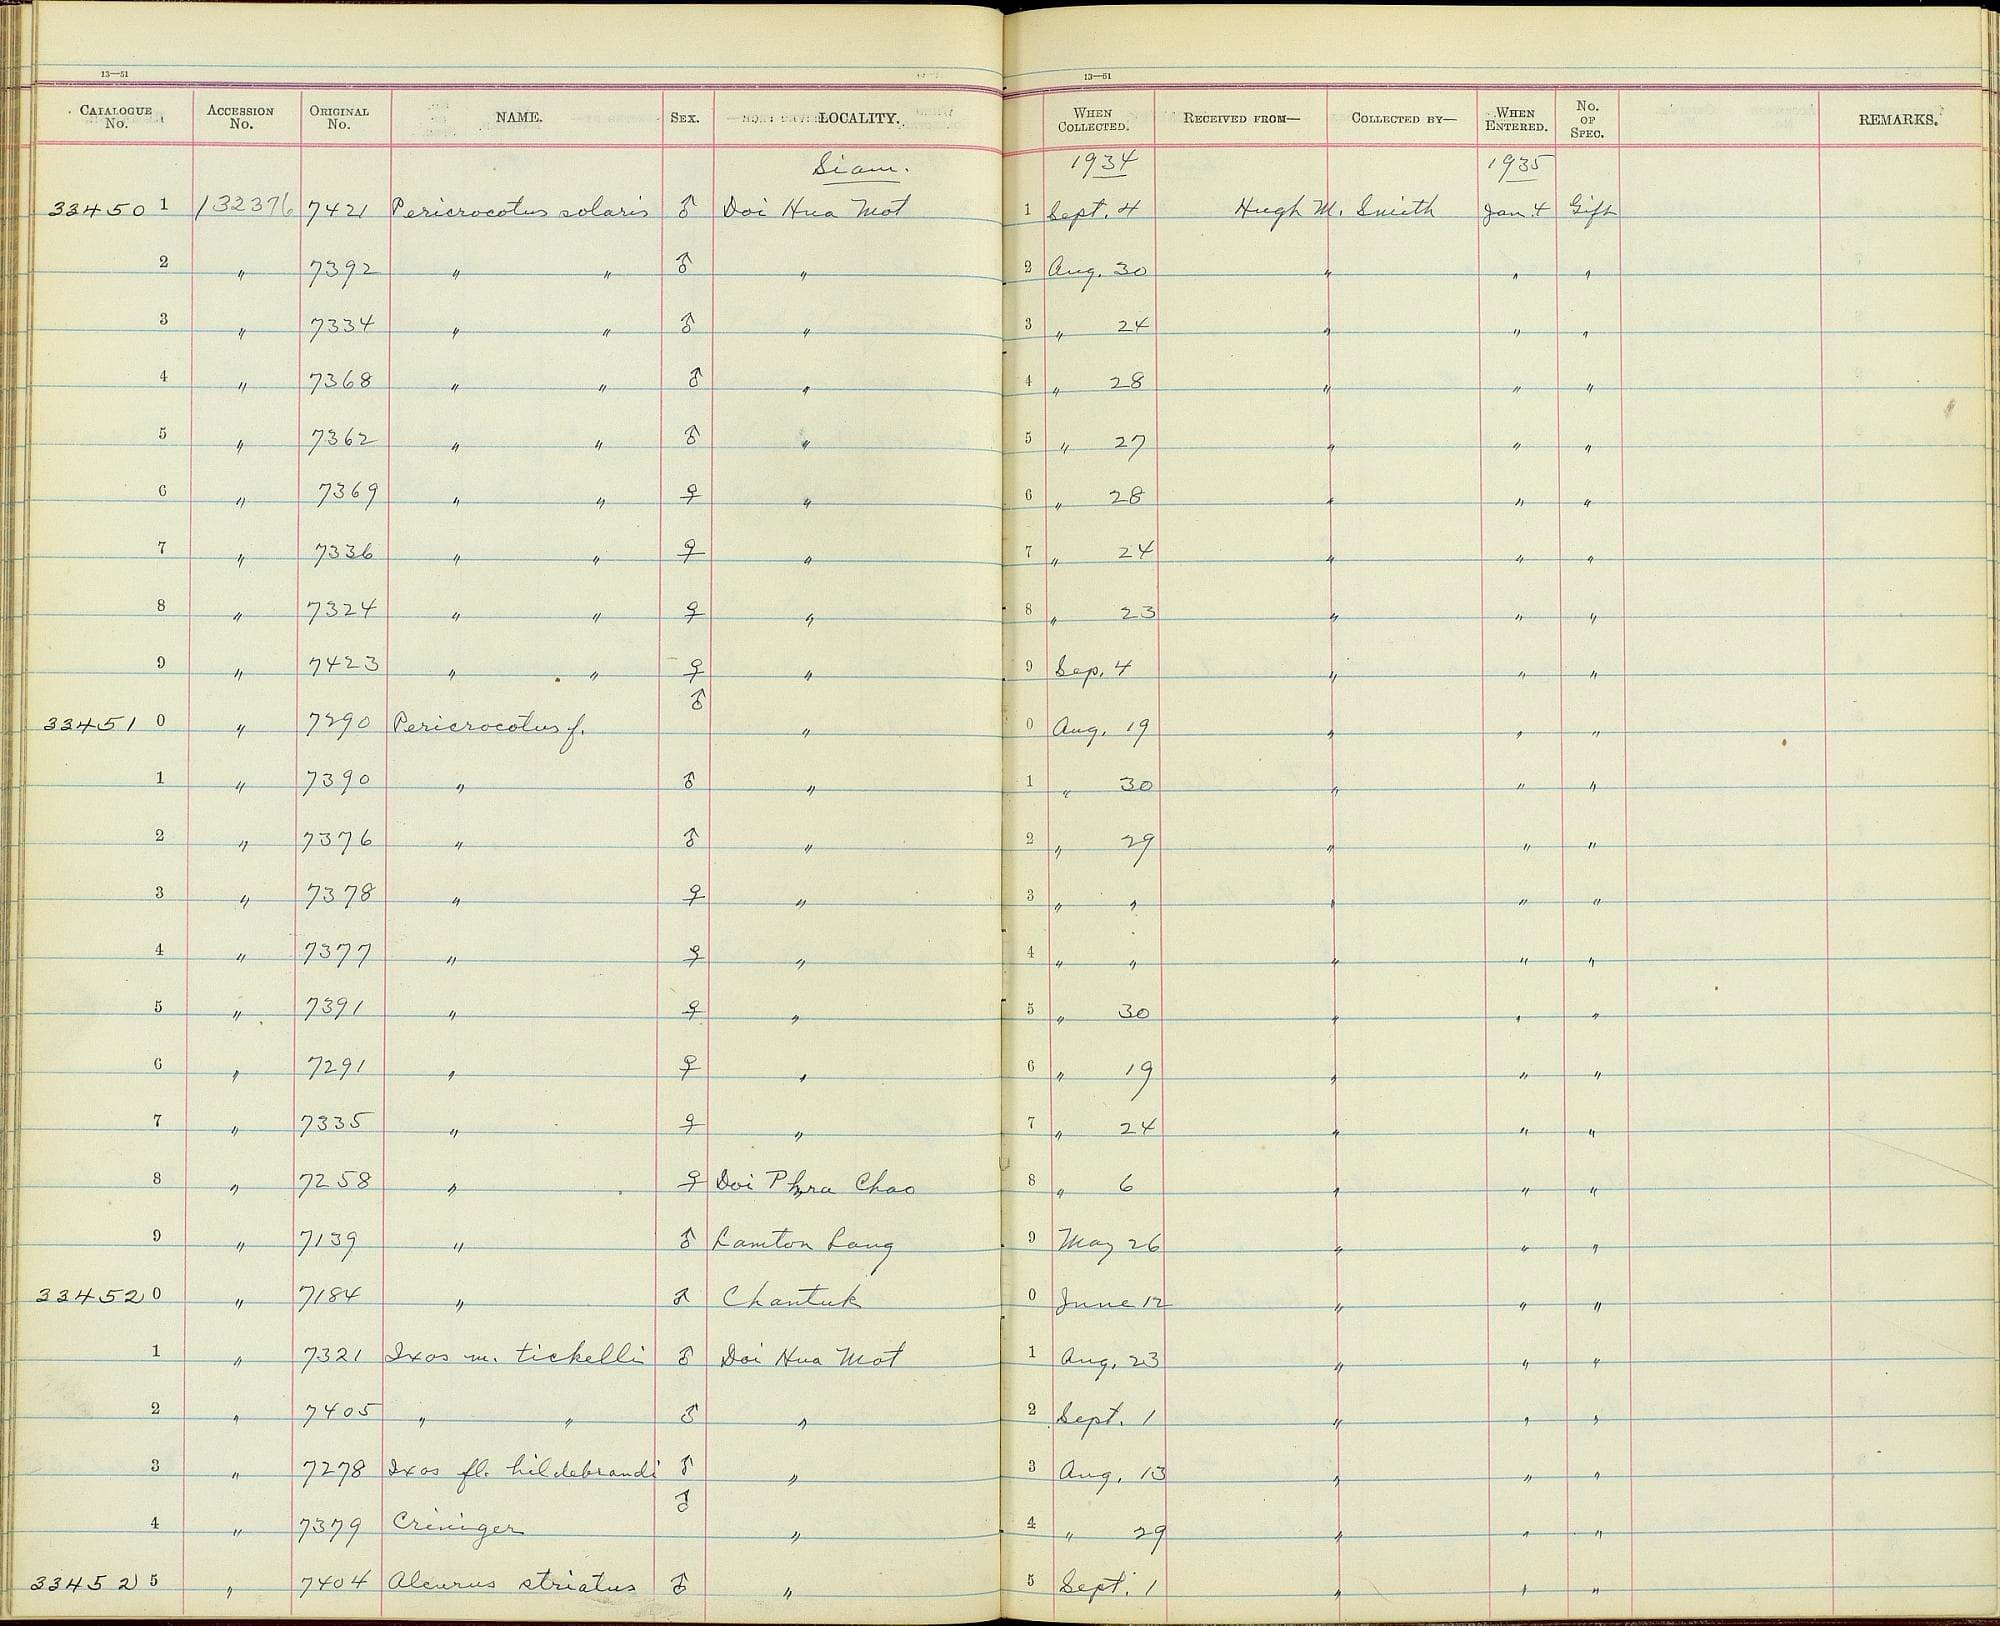 13—51
13—51
CATALOGUE No. ACCESSION No. ORIGINAL No. NAME. SEX. LOCALITY. WHEN COLLECTED. RECEIVED FROM— COLLECTED BY— WHEN ENTERED. No. OF SPEC. REMARKS.
Siam. 1934 1935
33450 1 132376 7421 Pericrocotus solaris ♂ Doi Hua Mot 1 Sept. 4 Hugh M. Smith Jan 4 Gift
2 " 7392 " " ♂ " 2 Aug. 30 " " "
3 " 7334 " " ♂ " 3 " 24 " " "
4 " 7368 " " ♂ " 4 " 28 " " "
5 " 7362 " " ♂ " 5 " 27 " " "
6 " 7369 " " ♀ " 6 " 28 " " "
7 " 7336 " " ♀ " 7 " 24 " " "
8 " 7324 " " ♀ " 8 " 23 " " "
9 " 7423 " " ♀ " 9 Sep. 4 " " "
33451 0 " 7290 Pericrocotus f. ♂ " 0 Aug. 19 " " "
1 " 7390 " ♂ " 1 " 30 " " "
2 " 7376 " ♂ " 2 " 29 " " "
3 " 7378 " ♀ " 3 " " " " "
4 " 7377 " ♀ " 4 " " " " "
5 " 7391 " ♀ " 5 " 30 " " "
6 " 7291 " ♀ " 6 " 19 " " "
7 " 7335 " ♀ " 7 " 24 " " "
8 " 7258 " ♀ Doi Phra Chao 8 " 6 " " "
9 " 7139 " ♂ Lamton Lang 9 May 26 " " "
33452 0 " 7184 " ♂ Chantuk 0 June 12 " " "
1 " 7321 Ixos m. tickelli ♂ Doi Hua Mot 1 Aug. 23 " " "
2 " 7405 " " ♂ " 2 Sept. 1 " " "
3 " 7278 Ixos fl. hildebrandi ♂ " 3 Aug. 13 " " "
4 " 7379 Criniger ♂ " 4 " 29 " " "
33452 5 " 7404 Alcurus striatus ♂ " 5 Sept. 1 " " "